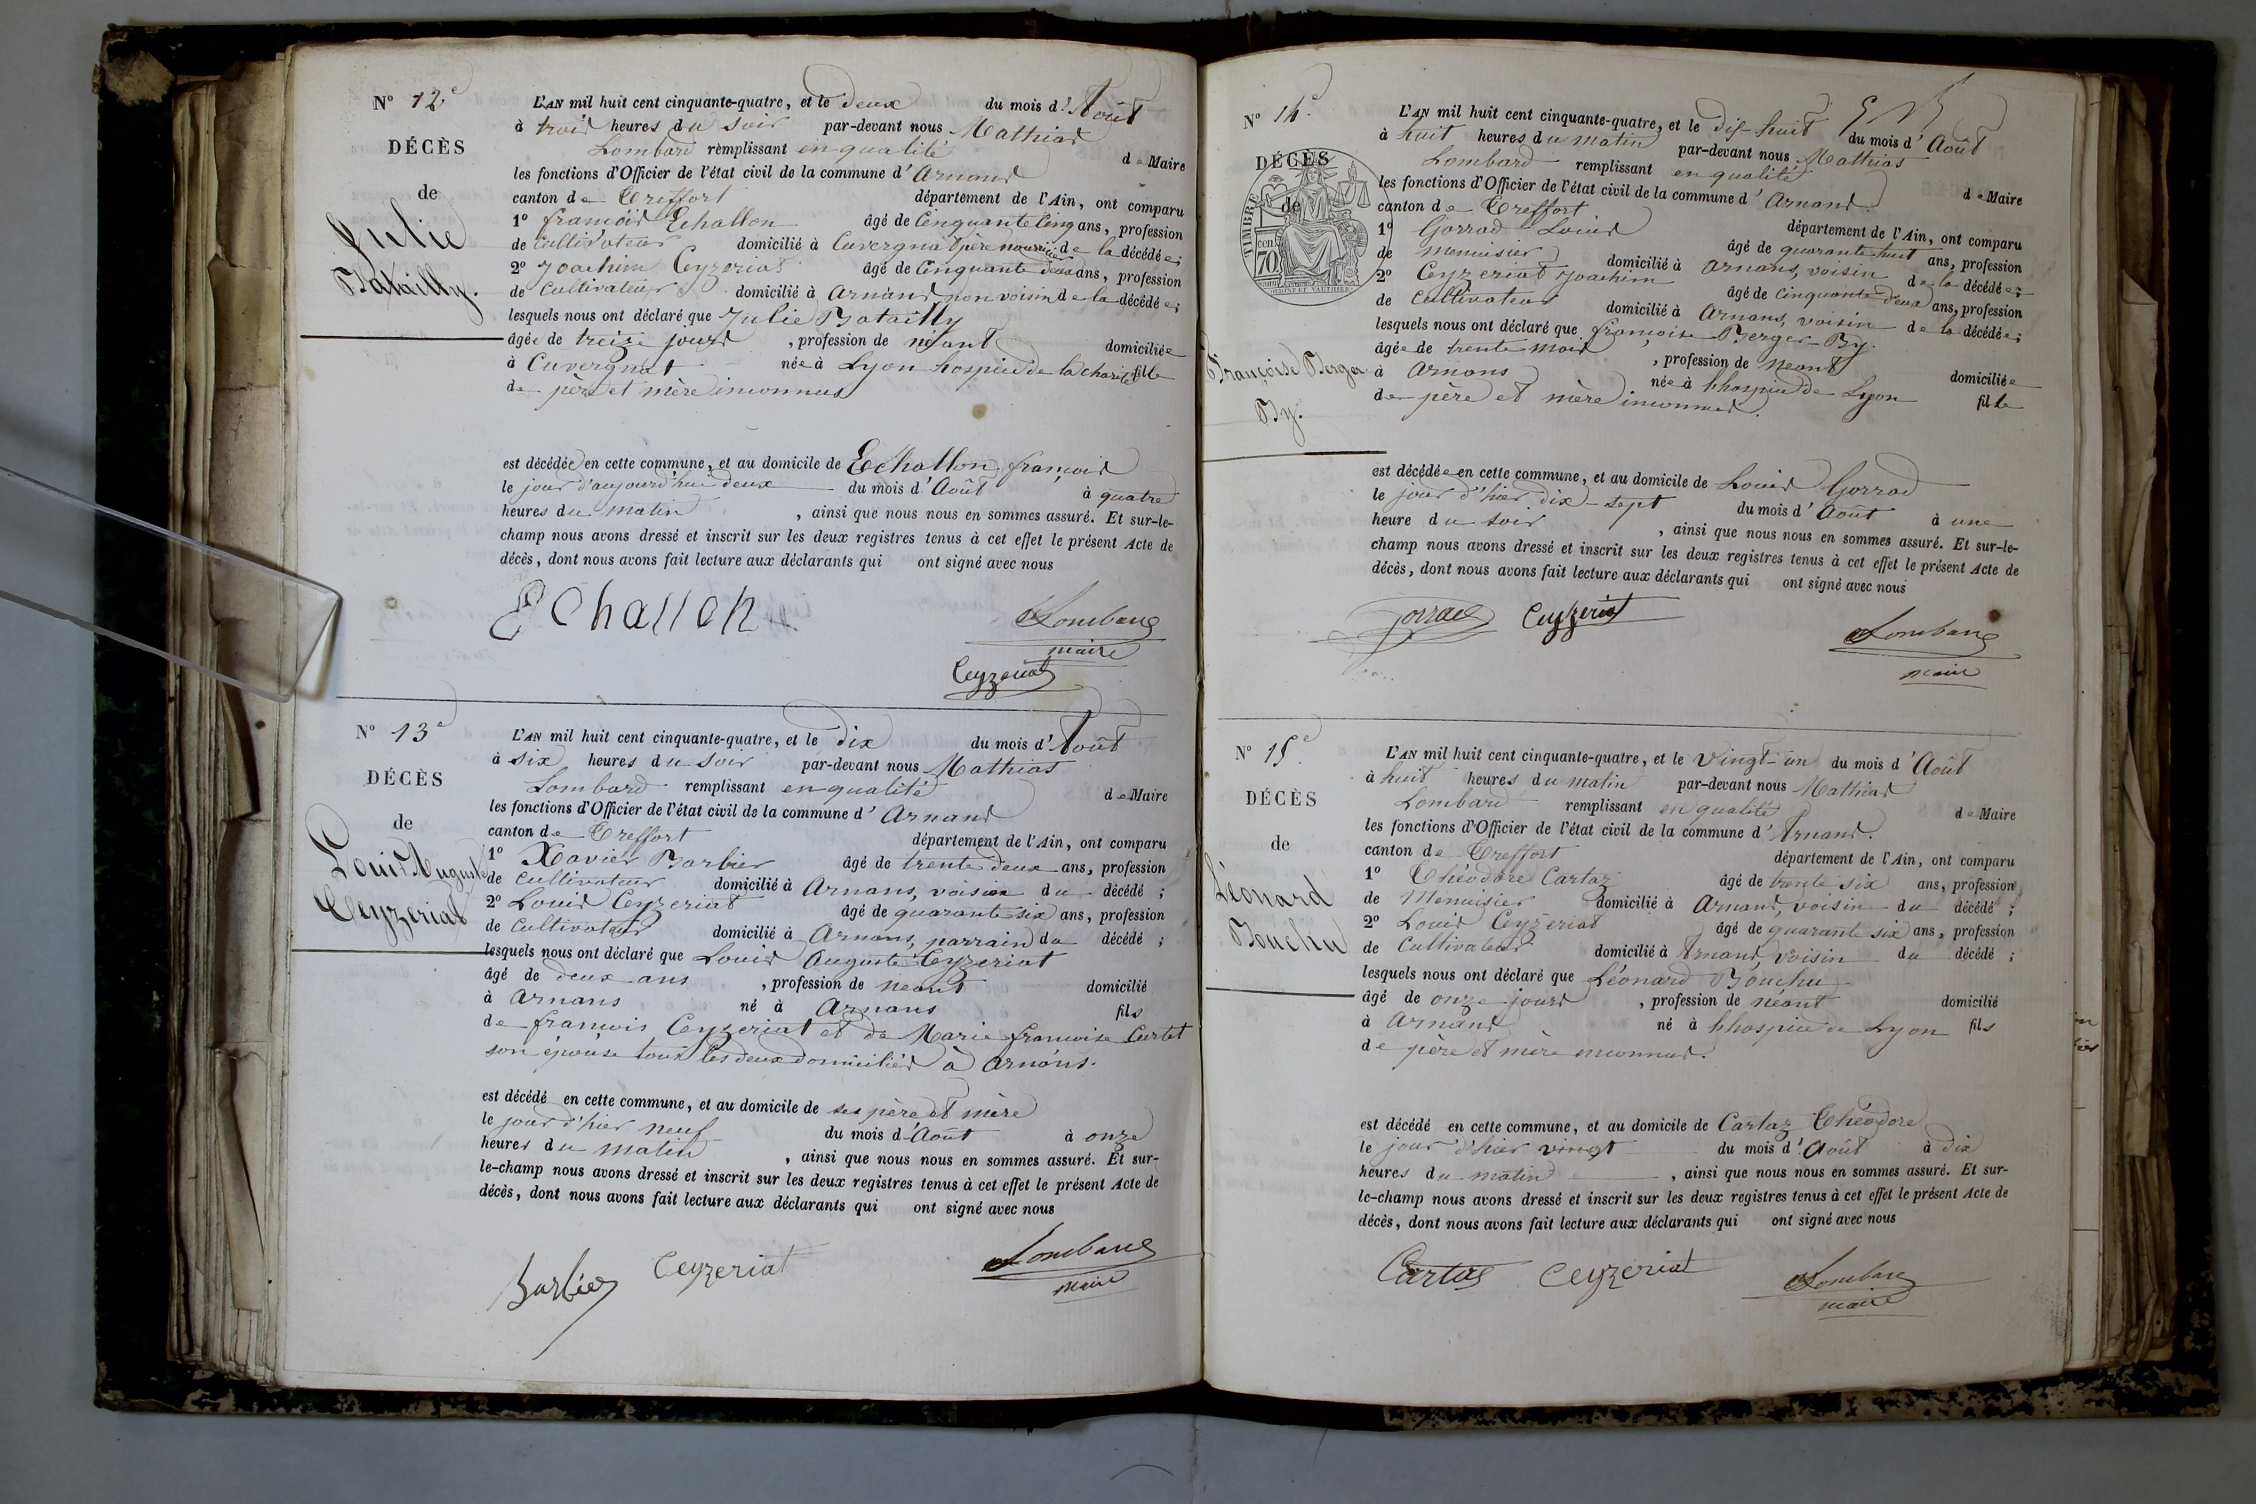 N° 12e
DÉCÈS
de
Julie
Batailly.
L'AN mil huit cent cinquante-quatre, et le deux du mois d'Août
à trois heures du soir par-devant nous Mathias
Lombard remplissant en qualité de Maire
les fonctions d'Officier de l'état civil de la commune d'Arnans
canton de Treffort département de l'Ain, ont comparu
1° françois Echallon âgé de Cinquante Cinq ans, profession
de Cultivateur domicilié à Cuvergnat père nourricier de la décédée;
2° Joachim Ceyzeriat âgé de Cinquante deux ans, profession
de Cultivateur domicilié à Arnans non voisin de la décédée;
lesquels nous ont déclaré que Julie Batailly
âgée de treize jours, profession de néant domiciliée
à Cuvergnat née à Lyon hospice de la charité fille
de père et mère inconnus
est décédée en cette commune, et au domicile de Echallon françois
le jour d'aujourd'hui deux du mois d'Août à quatre
heures du matin, ainsi que nous nous en sommes assuré. Et sur-le-
champ nous avons dressé et inscrit sur les deux registres tenus à cet effet le présent Acte de
décès, dont nous avons fait lecture aux déclarants qui ont signé avec nous
Echallon Lombard
maire
Ceyzeriat
N° 13e
DÉCÈS
de
Louis Auguste
Ceyzeriat
L'AN mil huit cent cinquante-quatre, et le dix du mois d'Août
à six heures du soir par-devant nous Mathias
Lombard remplissant en qualité de Maire
les fonctions d'Officier de l'état civil de la commune d'Arnans
canton de Treffort département de l'Ain, ont comparu
1° Xavier Barbier âgé de trente deux ans, profession
de Cultivateur domicilié à Arnans, voisin du décédé;
2° Louis Ceyzeriat âgé de quarante six ans, profession
de Cultivateur domicilié à Arnans, parrain du décédé;
lesquels nous ont déclaré que Louis Auguste Ceyzeriat
âgé de deux ans, profession de néant domicilié
à Arnans né à Arnans fils
de françois Ceyzeriat et de Marie françoise Curtet
son épouse tous les deux domiciliés à Arnans.
est décédé en cette commune, et au domicile de ses père et mère
le jour d'hier neuf du mois d'Août à onze
heures du matin, ainsi que nous nous en sommes assuré. Et sur-
le-champ nous avons dressé et inscrit sur les deux registres tenus à cet effet le présent Acte de
décès, dont nous avons fait lecture aux déclarants qui ont signé avec nous
Barbier Ceyzeriat Lombard
maire
N° 14e
DÉCÈS
de
TIMBRE
70
Françoise Berger
By.
L'AN mil huit cent cinquante-quatre, et le dix-huit du mois d'Août
à huit heures du matin par-devant nous Mathias
Lombard remplissant en qualité de Maire
les fonctions d'Officier de l'état civil de la commune d'Arnans
canton de Treffort département de l'Ain, ont comparu
1° Gorrad Louis âgé de quarante huit ans, profession
de menuisier domicilié à Arnans, voisin de la décédée;
2° Ceyzeriat Joachim âgé de cinquante deux ans, profession
de Cultivateur domicilié à Arnans, voisin de la décédée;
lesquels nous ont déclaré que françoise Berger-By.
âgée de trente mois, profession de néant domiciliée
à Arnans née à l'hospice de Lyon fille
de père et mère inconnus.
est décédée en cette commune, et au domicile de Louis Gorrad
le jour d'hier dix-sept du mois d'Août à une
heure du soir, ainsi que nous nous en sommes assuré. Et sur-le-
champ nous avons dressé et inscrit sur les deux registres tenus à cet effet le présent Acte de
décès, dont nous avons fait lecture aux déclarants qui ont signé avec nous
Gorrad Ceyzeriat Lombard
maire
N° 15e
DÉCÈS
de
Léonard
Bouchu
L'AN mil huit cent cinquante-quatre, et le vingt-un du mois d'Août
à huit heures du matin par-devant nous Mathias
Lombard remplissant en qualité de Maire
les fonctions d'Officier de l'état civil de la commune d'Arnans.
canton de Treffort département de l'Ain, ont comparu
1° Théodore Cartaz âgé de trente six ans, profession
de Menuisier domicilié à Arnans, voisin du décédé;
2° Louis Ceyzeriat âgé de quarante six ans, profession
de Cultivateur domicilié à Arnans, voisin du décédé;
lesquels nous ont déclaré que Léonard Bouchu
âgé de onze jours, profession de néant domicilié
à Arnans né à l'hospice de Lyon fils
de père et mère inconnus.
est décédé en cette commune, et au domicile de Cartaz Théodore
le jour d'hier vingt du mois d'Août à dix
heures du matin, ainsi que nous nous en sommes assuré. Et sur-
le-champ nous avons dressé et inscrit sur les deux registres tenus à cet effet le présent Acte de
décès, dont nous avons fait lecture aux déclarants qui ont signé avec nous
Cartas Ceyzeriat Lombard
maire